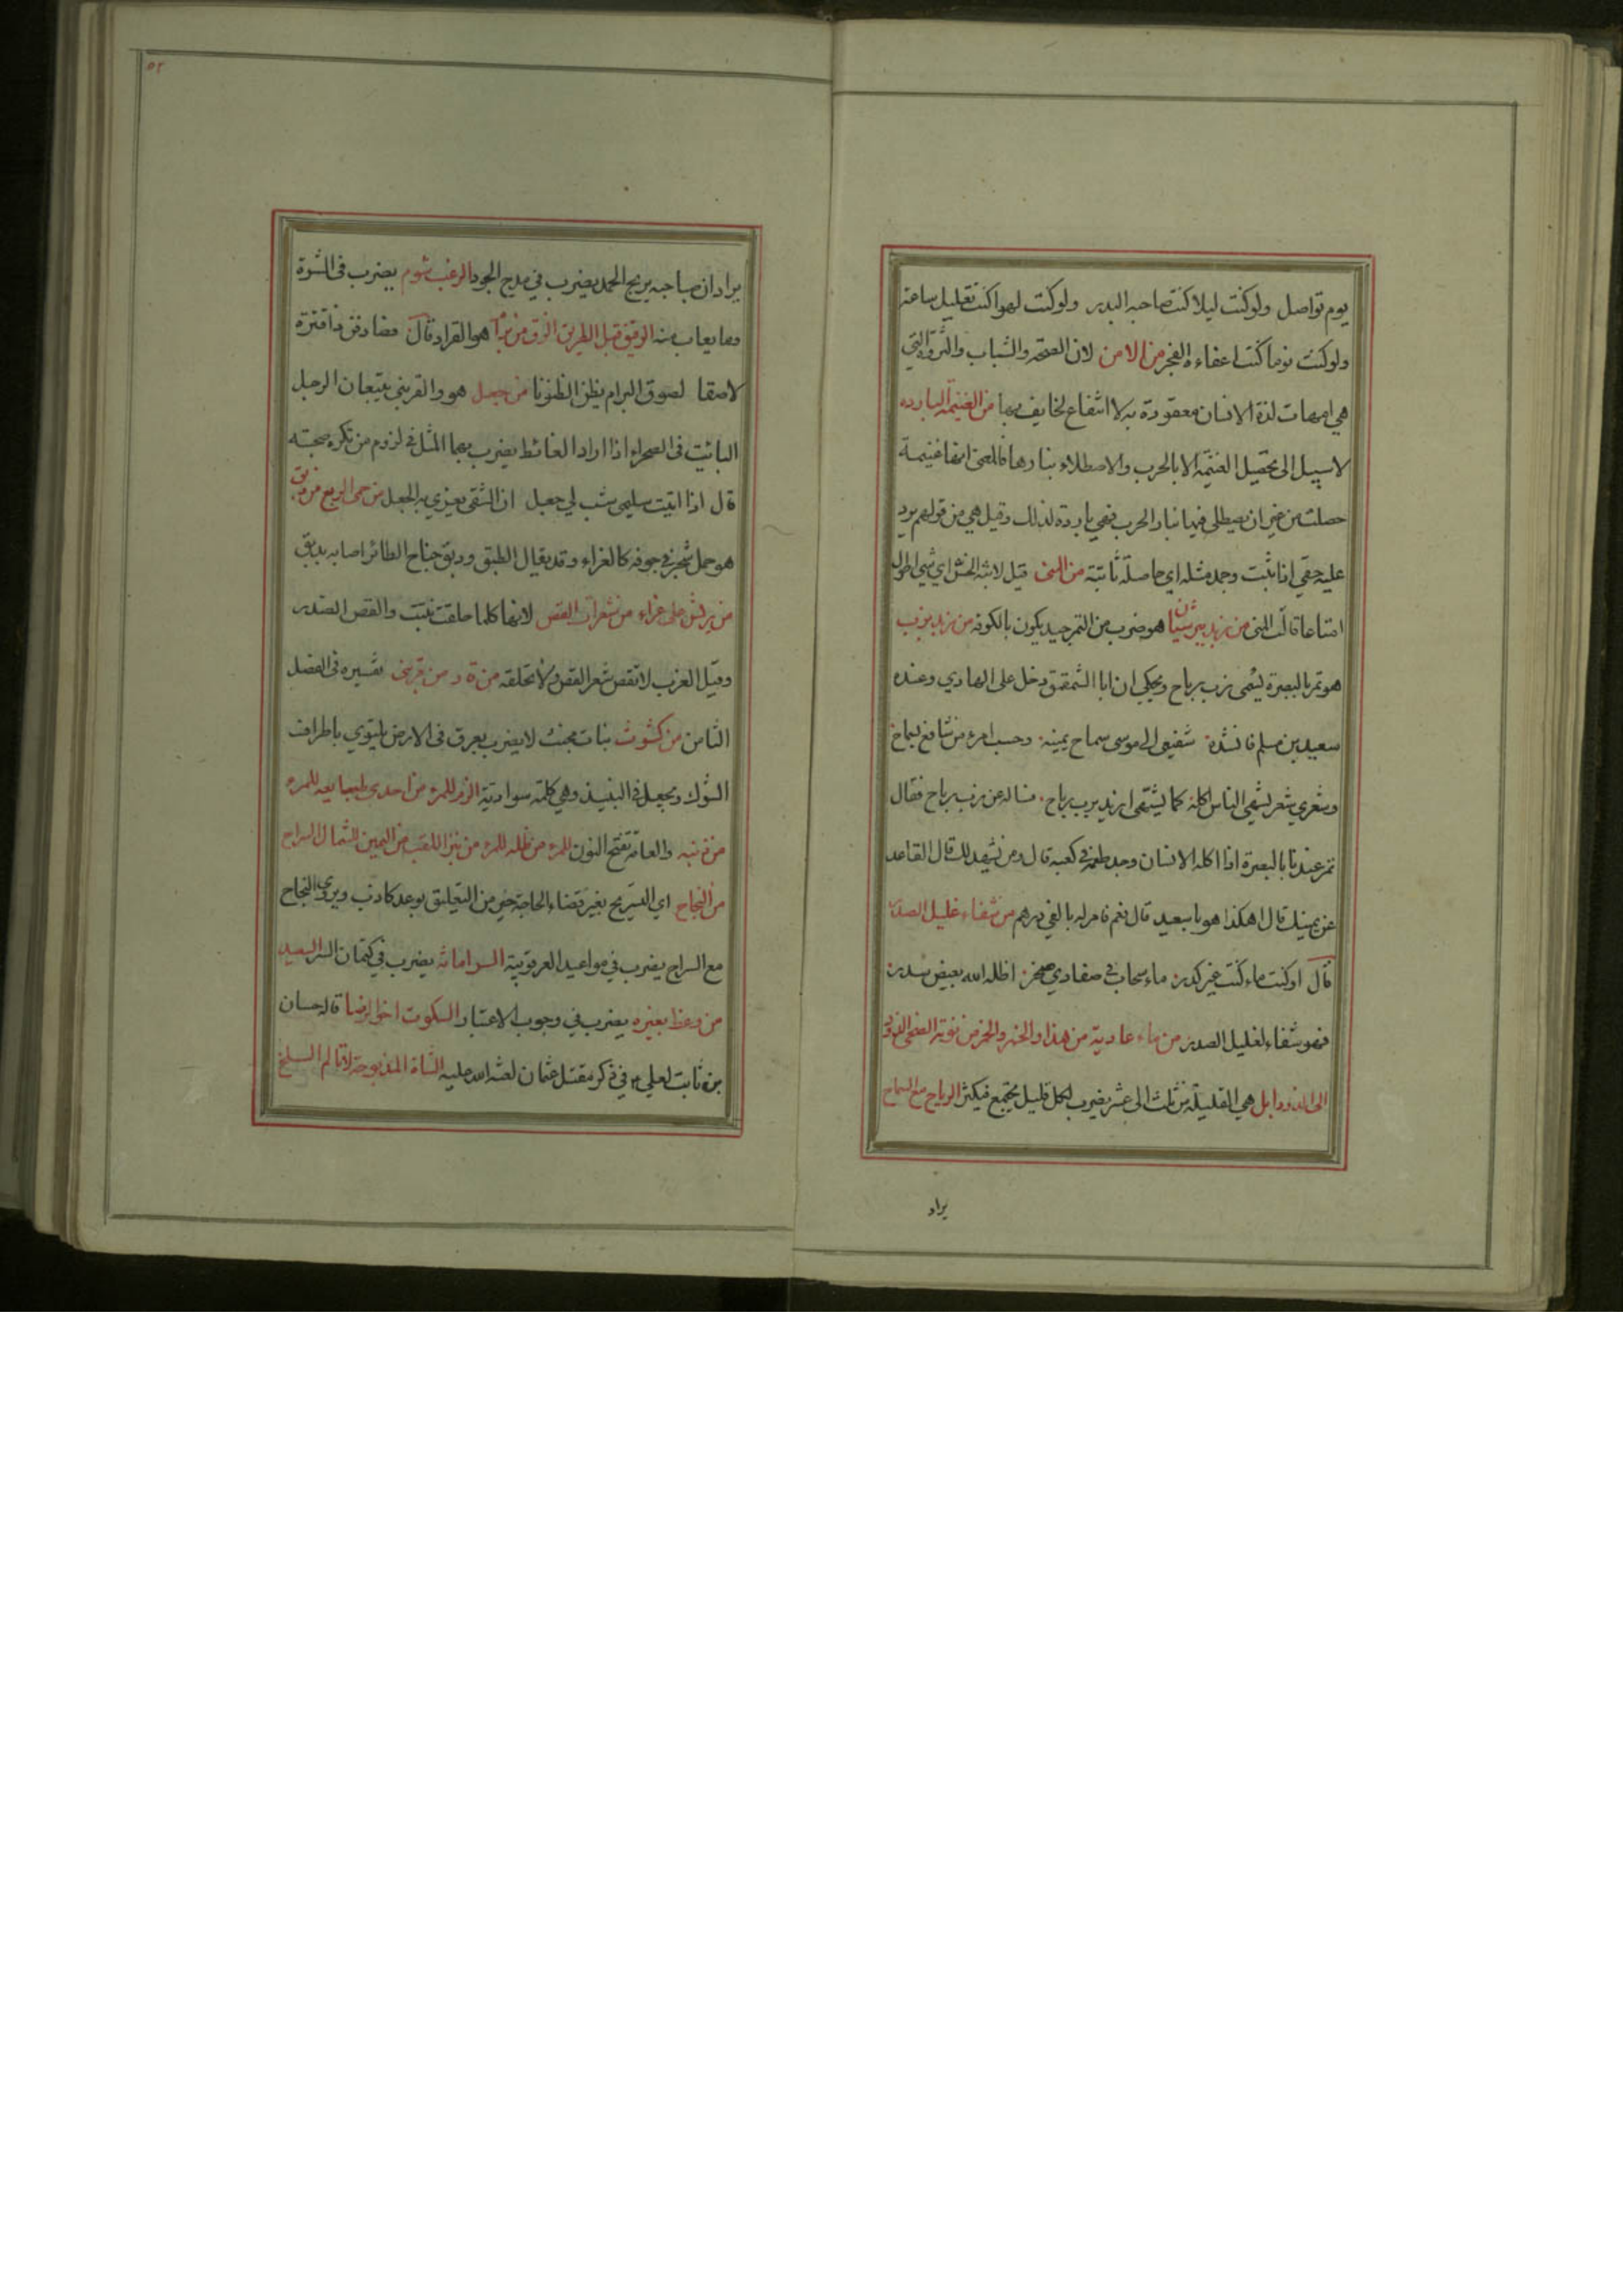 يوم تواصل ولو كنت ليلا كنت صاحبه البدر ولو كنت لهوا كنت تعليل ساعة
ولو كنت نوما كنت اغفاءة الفجر من الامن لان الصحة والشباب والثروة التي
هي امهات لذة الانسان معقودة به لا انتفاع لخايف بها من الغنيمة الباردة
لا سبيل الى تحصيل الغنيمة الا بالحرب والاصطلاء بنارها فالمعنى انها غنيمة
حصلت من غير ان يصطلى فيها بنار الحرب فهي باردة لذلك وقيل هي من قولهم برد
عليه حقي اذا ثبت وجمد مثله اي حاصلة ثابتة من المنى قيل لابنة الخس اي شي اطول
امتاعا قالت المنى من زبد بنرسيان هو ضرب من التمر جيد يكون بالكوفة من زبد بزب
هو تمر بالبصرة يسمى زب رباح ويحكى ان ابا الشمقمق دخل على الهادي وعنده
سعيد بن مسلم فانشده شفيعي الى موسى سماح يمينه وحسب امرء من شافع بسماح
وشعري شعر يشتهي الناس اكله كما يشتهى زبد بزب رباح فساله عن زب رباح فقال
تمر عندنا بالبصرة اذا اكله الانسان وجد طعمه في كعبه قال ومن يشهد لك قال القاعد
عن يمينك قال اهكذا هو يا سعيد قال نعم فامر له بالفي درهم من شفاء غليل الصدر
قال او كنت ماء كنت غير كدر ماء سحاب في صفا ذي صخر اظله الله بعيض سدر
فهو شفاء لغليل الصدر من ماء عادية من هذا والخبز والخز من نومة الضحى الذود
الى الذود ابل هي القليلة من ثلث الى عشر يضرب لكل قليل يجتمع فيكثر الرباح مع السماح
يراد
٥٢
يراد ان صاحبه يربح الحمد يضرب في مدح الجود الرغب شوم يضرب في الشره
وما يعاب منه الرفيق قبل الطريق الزق من برام هو القراد قال فصادفن ذا قترة
لاصقا لصوق البرام يظن الظنونا من جعل هو والقرنبى يتبعان الرجل
البائت في الصحراء اذا اراد الغائط يضرب بهما المثل في لزوم من تكره صحبته
قال اذا اتيت سليمى شب لي جعل ان الشقي يغري به الجعل من حمى الربع من دبق
هو حمل شجر في جوفه كالغراء وقد يقال الطبق ودبق جناح الطائر اصابه بدبق
من ريش على غراء من شعرات القص لانها كلما حلقت نبتت والقص الصدر
وقيل العرب لا تقص شعر القص ولا تحلقه من قراد ومن قرنبى تفسيره في الفصل
الثامن من كشوث نبات مجتث لا يضرب بعرق في الارض يلتوي باطراف
الشوك ويجعل في النبيذ وهي كلمة سوادية الزم للمرء من احدى طبايعه للمرء
من ذنبه والعامة تفتح النون للمرء من ظله للمرء من نبز اللقب من اليمين للشمال السراح
من النجاح اي التسريح بغير قضاء الحاجة خير من التعليق بوعد كاذب ويروى النجاح
مع السراح يضرب في مواعيد العرقوبية السر امانة يضرب في كتمان السر السعيد
من وعظ بغيره يضرب في وجوب الاعتبار السكوت اخو الرضا قاله حسان
بن ثابت لعلي في ذكر مقتل عثمان لعنة الله عليه الشاة المذبوحة لا تالم السلخ